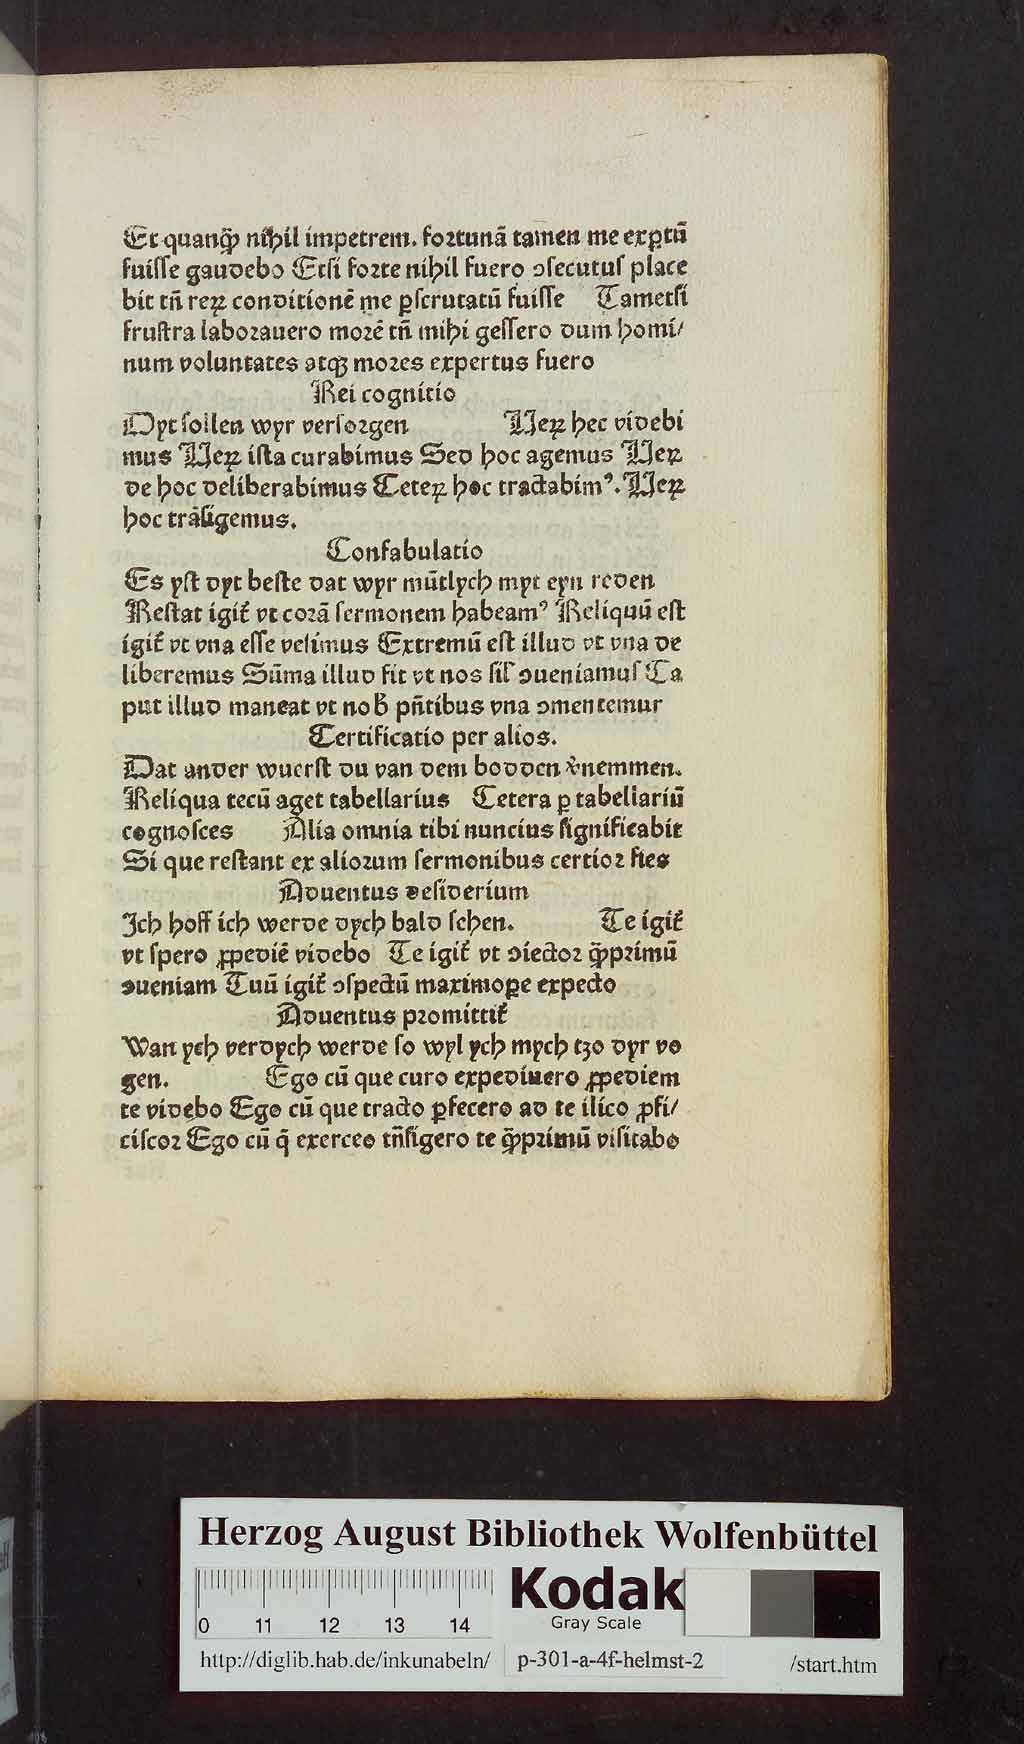 Et quanq̄ nihil impetrem. fortunā tamen me exptū
fuisse gaudebo Etsi forte nihil fuero ɔsecutus place
bit tn̄ reꝝ conditionē me ꝑscrutatū fuisse Tametsi
frustra laborauero morē tn̄ mihi gessero dum homi/
num voluntates atqꝫ mores expertus fuero
Rei cognitio
Dyt sollen wyr versorgen Veꝝ hec videbi
mus Veꝝ ista curabimus Sed hoc agemus Veꝝ
de hoc deliberabimus Ceteꝝ hoc tractabimꝰ. Veꝝ
hoc trāsigemus.
Confabulatio
Es yst dyt beste dat wyr mūtlych myt eyn reden
Restat igit̄ vt corā sermonem habeamꝰ Reliquū est
igit̄ vt vna esse velimus Extremū est illud vt vna de
liberemus Sūma illud sit vt nos sil̄ ɔueniamus Ca
put illud maneat vt nob̄ pn̄tibus vna ɔmentemur
Certificatio per alios.
Dat ander wuerst du van dem bodden v̄nemmen.
Reliqua tecū aget tabellarius Cetera ꝑ tabellariū
cognosces Alia omnia tibi nuncius significabit
Si que restant ex aliorum sermonibus certior fies
Aduentus desiderium
Ich hoff ich werde dych bald sehen. Te igit̄
vt spero ꝓpediē videbo Te igit̄ vt ɔiector q̄primū
ɔueniam Tuū igit̄ ɔspectū maximoꝑe expecto
Aduentus promittit̄
Wan ych verdych werde so wyl ych mych tzo dyr vo
gen. Ego cū que curo expediuero ꝓpediem
te videbo Ego cū que tracto ꝑfecero ad te ilico ꝓfi/
ciscor Ego cū q̄ exerceo tn̄sigero te q̄primū visitabo
Herzog August Bibliothek Wolfenbüttel
Kodak
Gray Scale
0 11 12 13 14
http://diglib.hab.de/inkunabeln/ p-301-a-4f-helmst-2 /start.htm